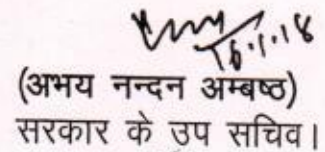 16.1.18
(अभय नन्दन अम्बष्ठ)
सरकार के उप सचिव।